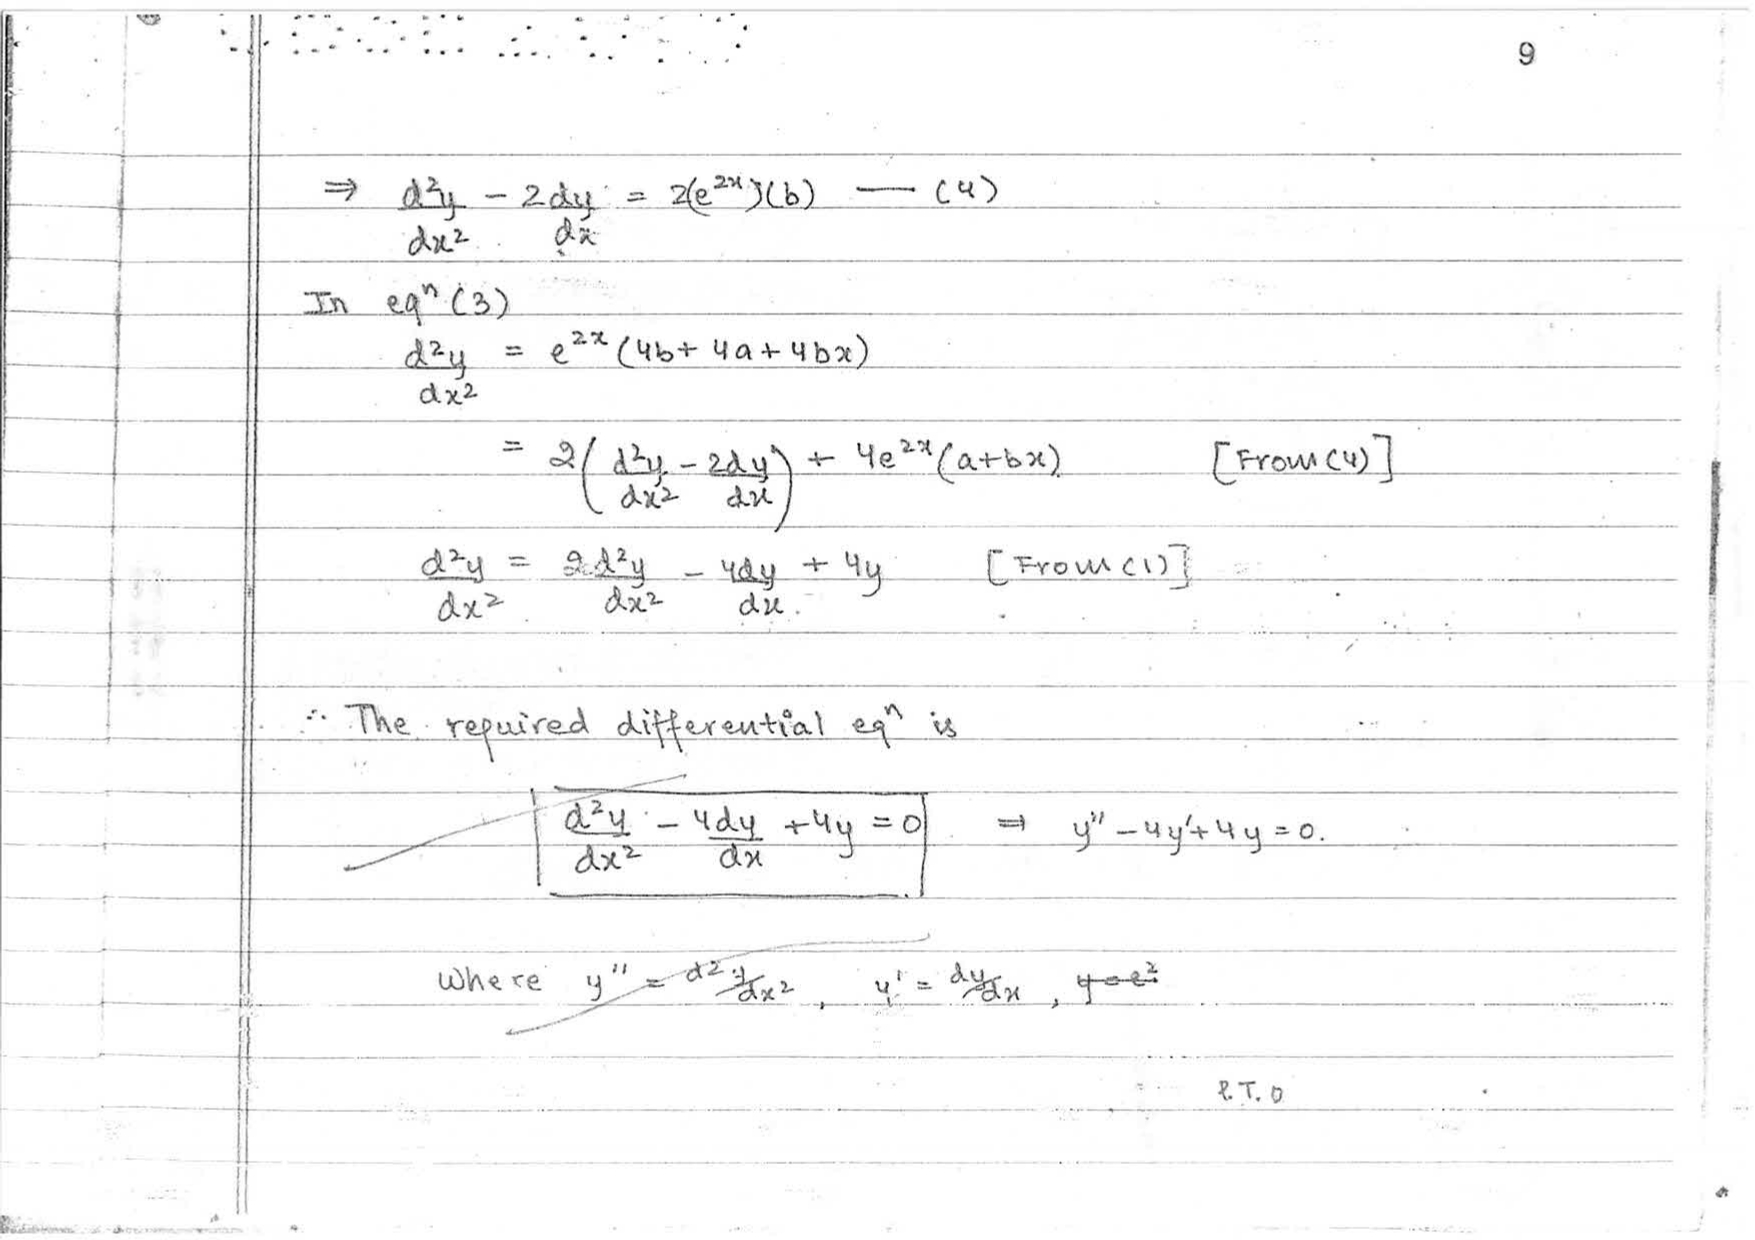 9
⇒ d²y/dx² - 2dy/dx = 2(e^{2x})(b) — (4)
In eqⁿ (3)
d²y/dx² = e^{2x} (4b + 4a + 4bx)
= 2(d²y/dx² - 2dy/dx) + 4e^{2x}(a+bx) [From (4)]
d²y/dx² = 2d²y/dx² - 4dy/dx + 4y [From (1)]
∴ The required differential eqⁿ is
d²y/dx² - 4dy/dx + 4y = 0 ⇒ y'' - 4y' + 4y = 0.
Where y'' = d²y/dx², y' = dy/dx,
P.T.O